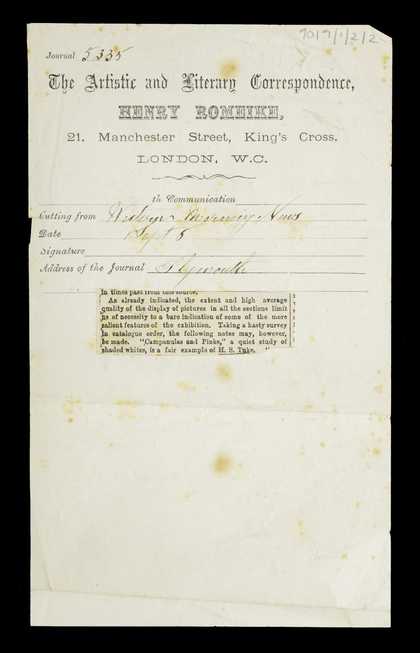 9019/1/2/2
Journal 5335
The Artistic and Literary Correspondence,
HENRY ROMEIKE,
21. Manchester Street, King's Cross.
LONDON, W.C.
th Communication
Cutting from Western Morning News
Date Sept 8
Signature
Address of the Journal Plymouth
in times past from this source.
As already indicated, the extent and high average
quality of the display of pictures in all the sections limit
us of necessity to a bare indication of some of the more
salient features of the exhibition. Taking a hasty survey
in catalogue order, the following notes may, however,
be made. "Campanulas and Pinks," a quiet study of
shaded whites, is a fair example of H. S. Tuke. "